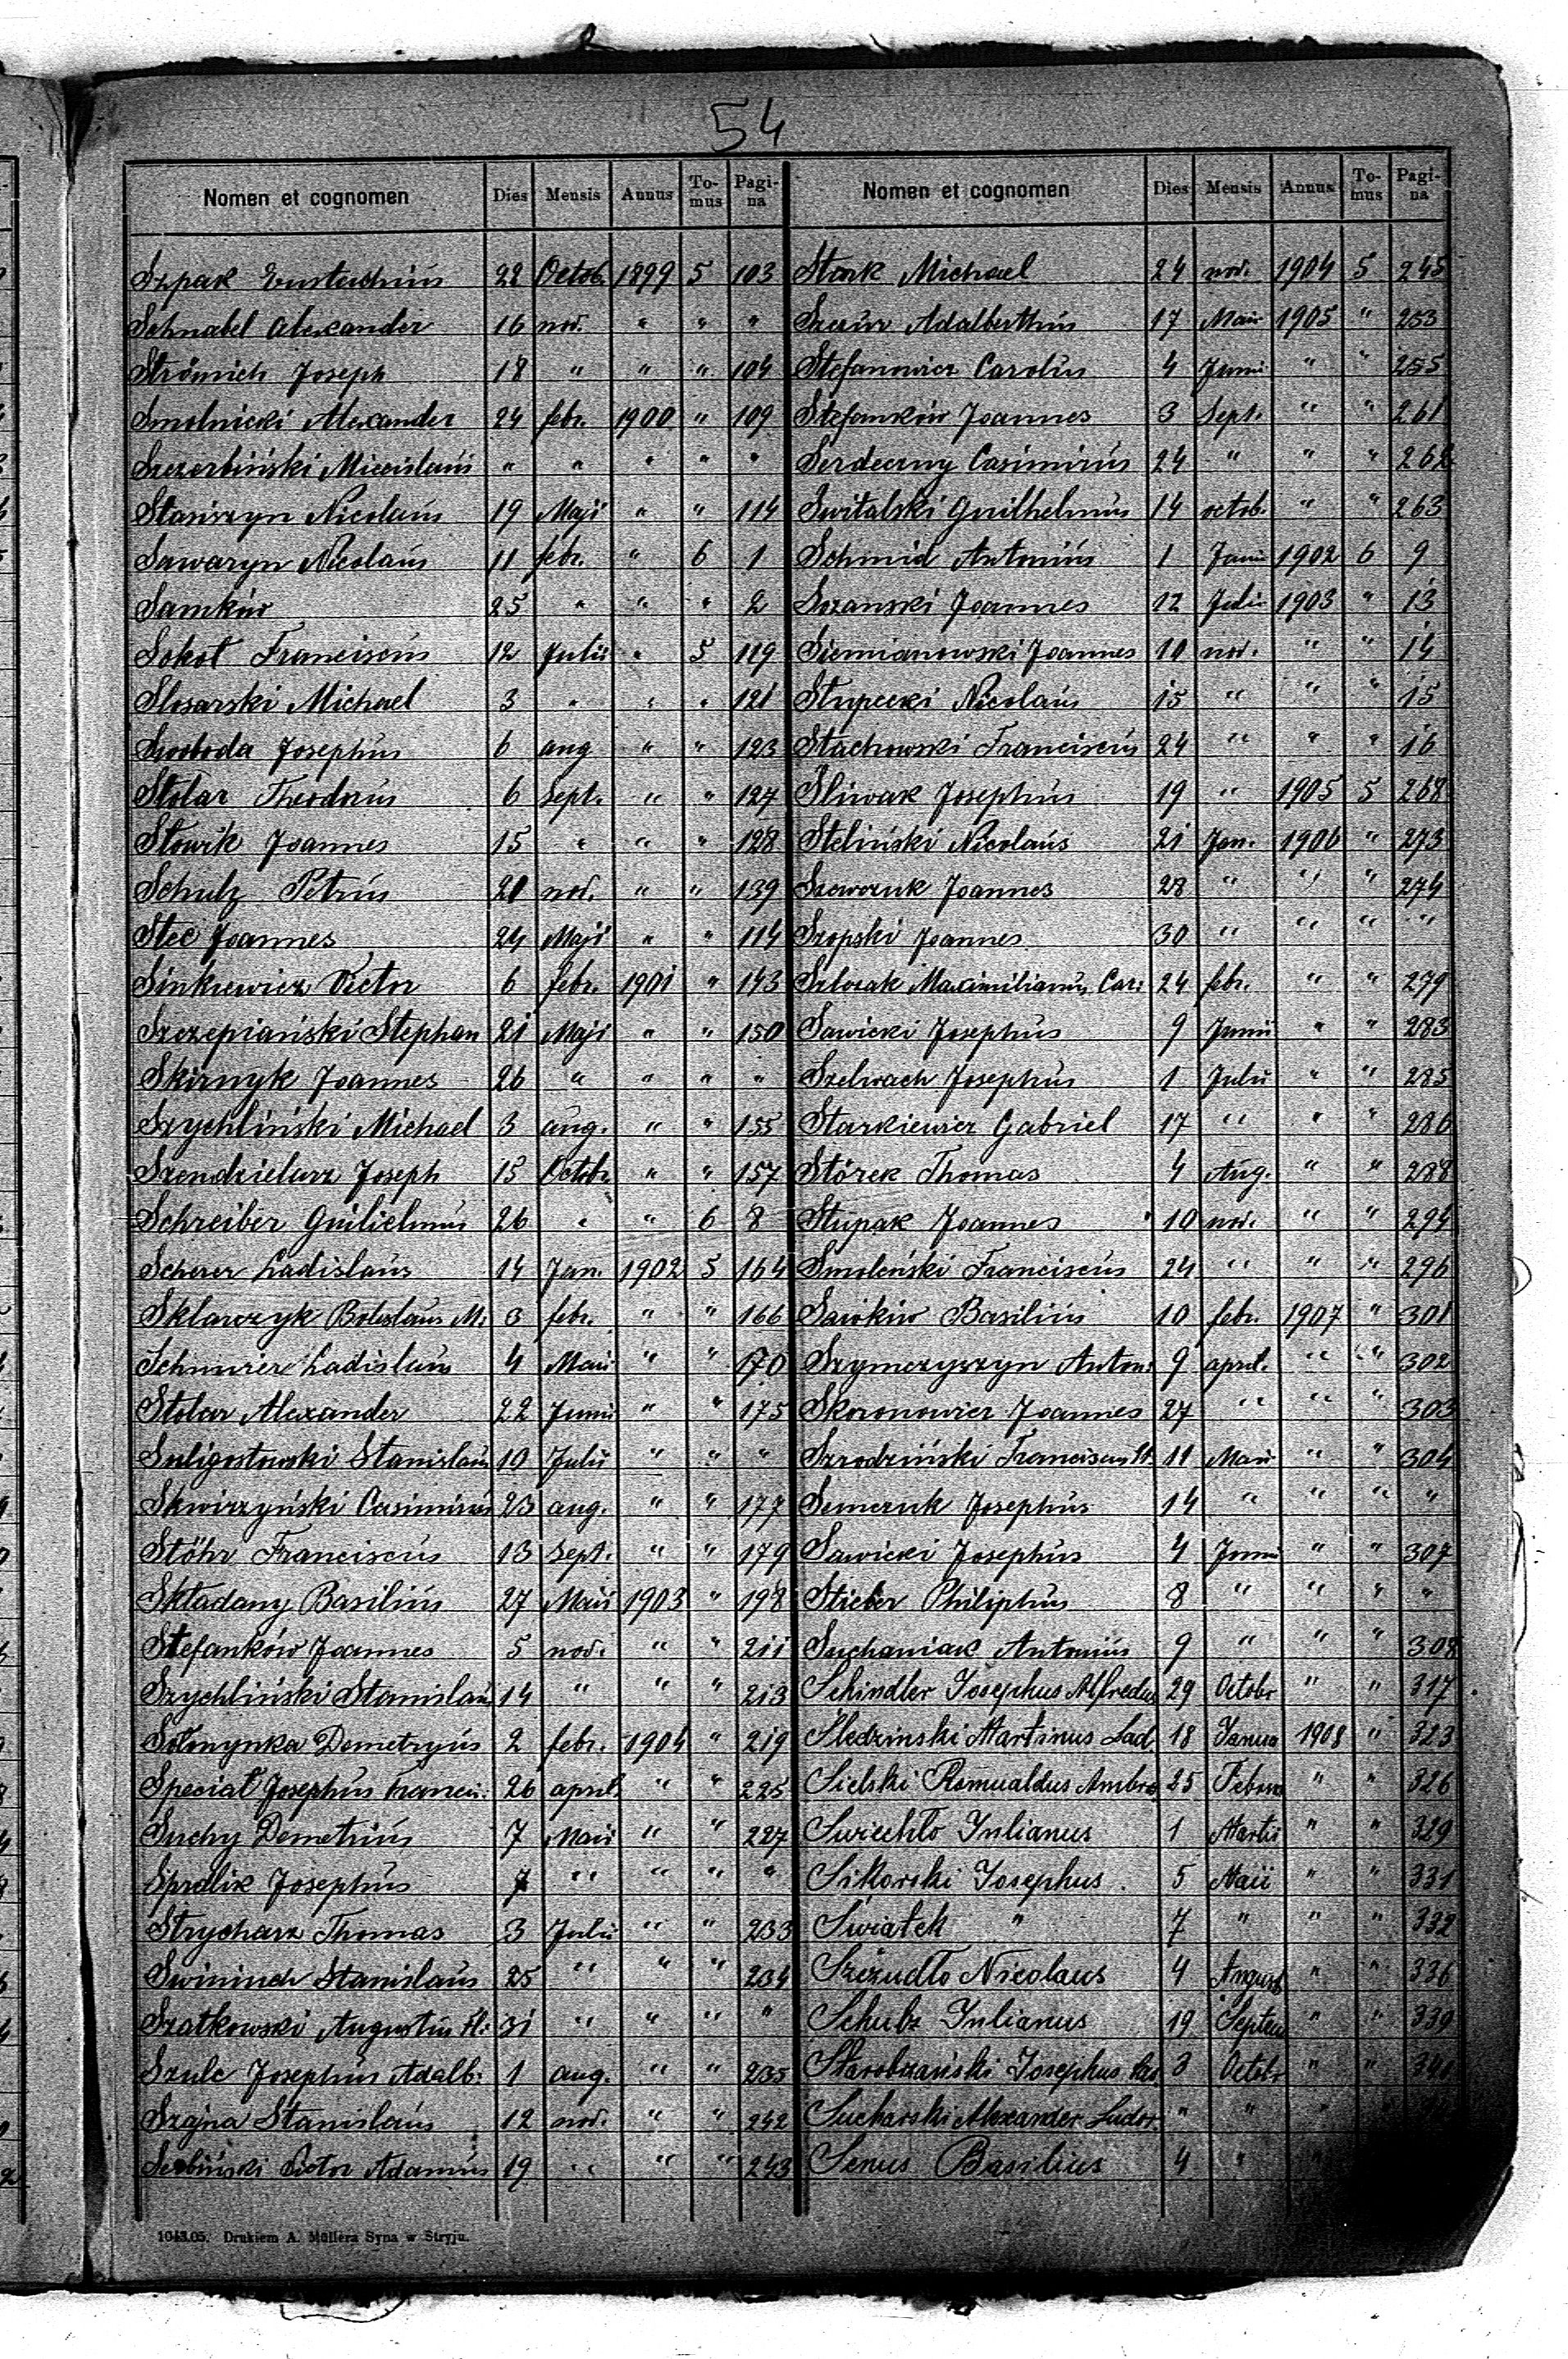 54
Nomen et cognomen Dies Mensis Annus To-mus Pagi-na
Szpak Eustachius 22 Octob. 1899 5 103
Schnabel Alexander 16 nov. " " "
Strömich Joseph 18 " " " 104
Smolnicki Alexander 24 febr. 1900 " 109
Szczerbiński Miecislaus " " " " "
Stasiszyn Nicolaus 19 Maji " " 114
Sawaryn Nicolaus 11 febr. " 6 1
Samków 25 " " " 2
Sokoł Franciscus 12 Julii " 5 119
Slosarski Michael 3 " " " 121
Swoboda Josephus 6 aug " " 123
Stolar Theodorus 6 Sept. " " 127
Słowik Joannes 15 " " " 128
Schulz Petrus 21 nov. " " 139
Stec Joannes 24 Maji " " 114
Sinkiewicz Victor 6 febr. 1901 " 143
Szczepiański Stephan 21 Maji " " 150
Skirnyk Joannes 26 " " " "
Szychliński Michael 3 aug. " " 155
Szendzielarz Joseph 15 Octob. " " 157
Schreiber Guilielmus 26 " " 6 8
Scherer Ladislaus 14 Jan. 1902 5 164
Sklarczyk Boleslaus M. 3 febr. " " 166
Schnurer Ladislaus 4 Maii " " 170
Stolar Alexander 22 Junii " " 175
Suligostowski Stanislaus 10 Julii " " "
Skwirzyński Casimirus 23 aug. " " 177
Stöhr Franciscus 13 Sept. " " 179
Składany Basilius 27 Maii 1903 " 198
Stefanków Joannes 5 nov. " " 211
Szychliński Stanislaus 14 " " " 213
Sołonynka Demetryus 2 febr. 1904 " 219
Speciał Josephus Franci. 26 april. " " 225
Suchy Demetrius 7 Maii " " 227
Sprdlik Josephus 7 " " " "
Strycharz Thomas 3 Julii " " 233
Swininch Stanislaus 25 " " " 234
Szatkowski Augustin 31 " " " "
Szulc Josephus Adalb. 1 aug. " " 235
Szajna Stanislaus 12 nov. " " 242
Victor Adamus 19 " " " 243
1043.05. Drukiem A. Müllera Syna w Stryju.
Nomen et cognomen Dies Mensis Annus To-mus Pagi-na
Stark Michael 24 nov. 1904 5 245
Szczur Adalberthus 17 Maii 1905 " 253
Stefanowicz Carolus 4 Junii " " 255
Stefanków Joannes 3 Sept. " " 261
Serdeczny Casimirus 24 " " " 262
Switalski Guilhelmus 14 octob. " " 263
Schmid Antonius 1 Junii 1902 6 9
Szanski Joannes 12 Julii 1903 " 13
Siemianowski Joannes 10 nov. " " 14
Strypecki Nicolaus 15 " " " 15
Stachowski Franciscus 24 " " " 16
Sliwak Josephus 19 " 1905 5 268
Steliński Nicolaus 21 Jan. 1906 " 273
Szewczuk Joannes 28 " " " 274
Szopski Joannes 30 " " " "
Szlozak Maximilianus Car. 24 febr. " " 279
Sawicki Josephus 9 Junii " " 283
Szelwach Josephus 1 Julii " " 285
Starkiewicz Gabriel 17 " " " 286
Störek Thomas 4 Aug. " " 288
Stupak Joannes 10 nov. " " 294
Smoleński Franciscus 24 " " " 296
Sawkiw Basilius 10 febr. 1907 " 301
Szymczyszyn Anton. 9 april. " " 302
Skoronowicz Joannes 27 " " " 303
Szrodziński Franciscus 11 Maii " " 304
Semczuk Josephus 14 " " " "
Sawicki Josephus 4 Junii " " 307
Stieber Philiphus 8 " " " "
Suchaniak Antonius 9 " " " 308
Schindler Josephus Alfredus 29 Octobr " " 317
Śledzinski Martinus Lad. 18 Janua 1908 " 323
Sielski Romualdus Ambro 25 Februa " " 326
Swiechło Julianus 1 Martii " " 329
Sikorski Josephus. 5 Maii " " 331
Swiatek " 7 " " " 332
Szczudło Nicolaus 4 Augusti " " 336
Schulz Julianus 19 Septem " " 339
Starobrzański Josephus 3 Octobr " "
Sucharski Alexander Ludov. " " "
Senus Basilius 4 " "